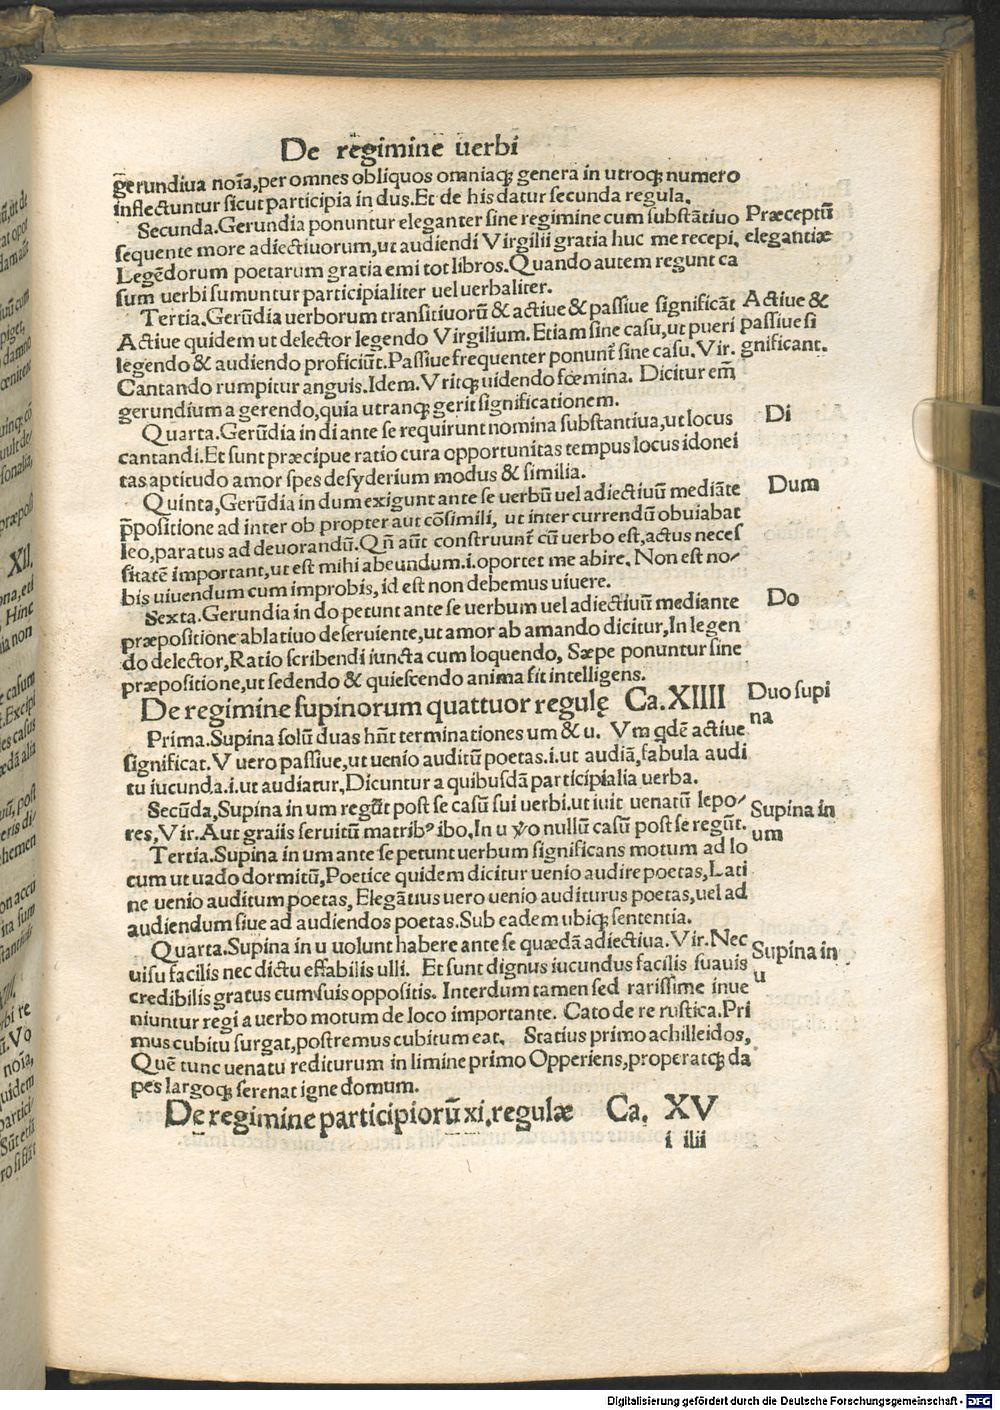 De regimine uerbi
gerundiua noīa,per omnes obliquos omniaq; genera in utroq; numero
inflectuntur sicut participia in dus.Et de his datur secunda regula.
Secunda.Gerundia ponuntur eleganter sine regimine cum substātiuo
Præceptū
sequente more adiectiuorum,ut audiendi Virgilii gratia huc me recepi.
elegantiæ
Legēdorum poetarum gratia emi tot libros.Quando autem regunt ca
sum uerbi sumuntur participialiter uel uerbaliter.
Tertia.Gerūdia uerborum transitiuorū & actiue & passiue significāt
Actiue &
Actiue quidem ut delector legendo Virgilium.Etiam sine casu,ut pueri
passiue si
legendo & audiendo proficiūt.Passiue frequenter ponunt̄ sine casu.Vir.
gnificant.
Cantando rumpitur anguis.Idem.Vritq; uidendo fœmina. Dicitur em̄
gerundium a gerendo,quia utranq; gerit significationem.
Quarta.Gerūdia in di ante se requirunt nomina substantiua,ut locus
Di
cantandi.Et sunt præcipue ratio cura opportunitas tempus locus idonei
tas aptitudo amor spes desyderium modus & similia.
Quinta,Gerūdia in dum exigunt ante se uerbū uel adiectiuū mediāte
Dum
p̄positione ad inter ob propter aut cōsimili, ut inter currendū obuiabat
leo,paratus ad deuorandū.Qn̄ aūt construunt̄ cū uerbo est,actus neces
sitatē important,ut est mihi abeundum.i.oportet me abire. Non est no/
bis uiuendum cum improbis, id est non debemus uiuere.
Sexta.Gerundia in do petunt ante se uerbum uel adiectiuū mediante
Do
præpositione ablatiuo deseruiente,ut amor ab amando dicitur,In legen
do delector,Ratio scribendi iuncta cum loquendo, Sæpe ponuntur sine
præpositione,ut sedendo & quiescendo anima fit intelligens.
De regimine supinorum quattuor regulę Ca.XIIII
Duo supi
na
Prima.Supina solū duas hn̄t terminationes um & u. Vm qdē actiue
significat.V uero passiue,ut uenio auditū poetas.i.ut audiā,fabula audi
tu iucunda.i.ut audiatur.Dicuntur a quibusdā participialia uerba.
Secūda,Supina in um regūt post se casū sui uerbi.ut iuit uenatū lepo/
Supina in
res,Vir.Aut graiis seruitū matribꝰ ibo.In u v̄o nullū casū post se regūt.
um
Tertia.Supina in um ante se petunt uerbum significans motum ad lo
cum ut uado dormitū,Poetice quidem dicitur uenio audire poetas,Lati
ne uenio auditum poetas, Elegātius uero uenio auditurus poetas,uel ad
audiendum siue ad audiendos poetas.Sub eadem ubiq; sententia.
Quarta.Supina in u uolunt habere ante se quædā adiectiua.Vir.Nec
Supina in
uisu facilis nec dictu effabilis ulli. Et sunt dignus iucundus facilis suauis
u
credibilis gratus cum suis oppositis. Interdum tamen sed rarissime inue
niuntur regi a uerbo motum de loco importante. Cato de re rustica.Pri
mus cubitu surgat,postremus cubitum eat. Statius primo achilleidos,
Quē tunc uenatu rediturum in limine primo Opperiens,properatq; da
pes largoq; serenat igne domum.
De regimine participiorū xi.regulæ Ca. XV
i iiii
Digitalisierung gefördert durch die Deutsche Forschungsgemeinschaft - DFG